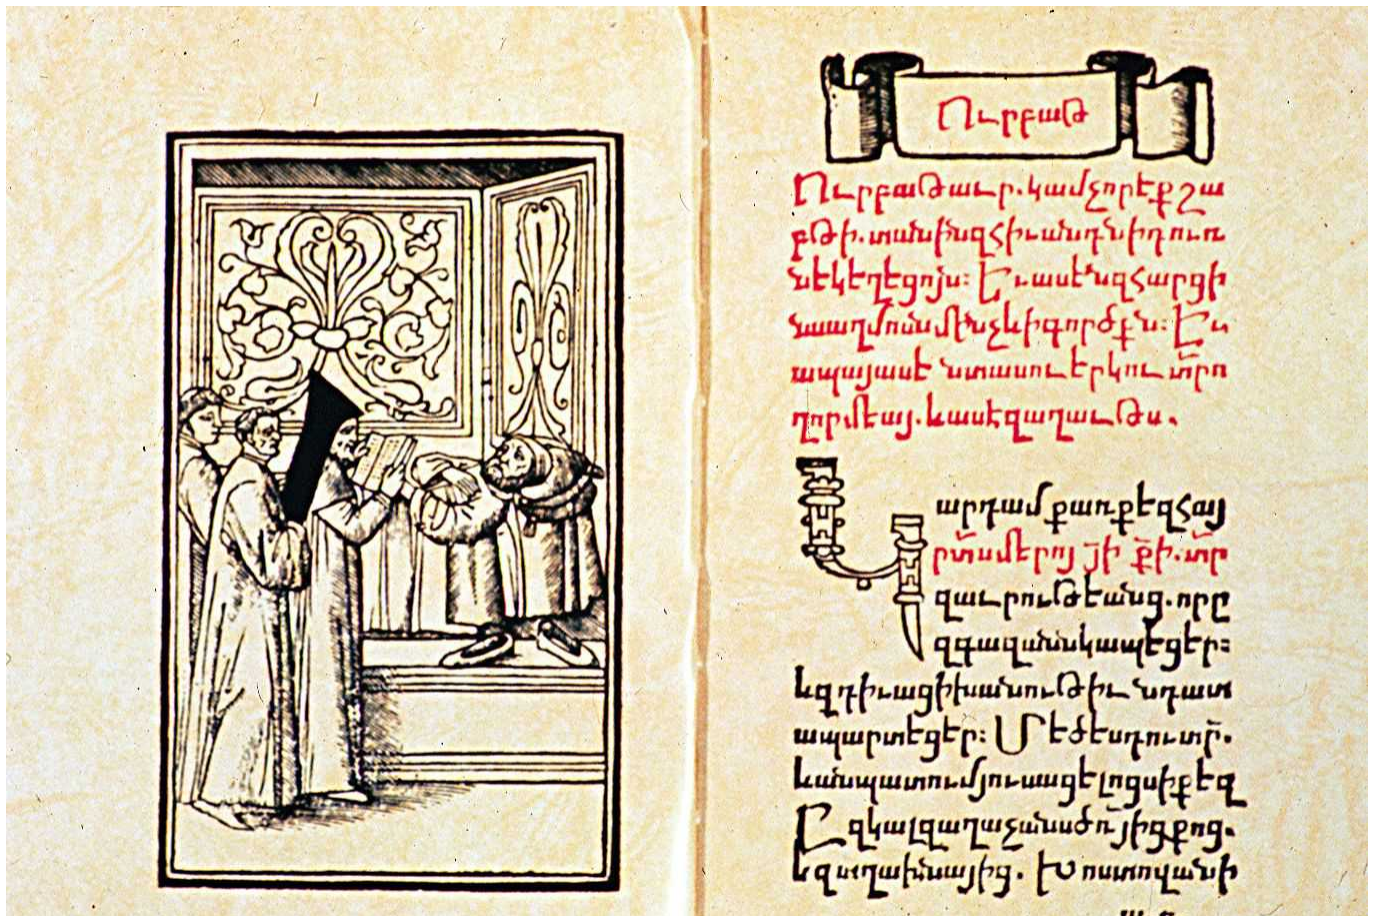 Ուրբաթ
Ուրբաթաւր.կամչորէքշա
բթի.տանինզհիւանդնիդուռ
նեկեղեցոյն։ Եւասէնզհարցի
նսաղմոսնմինչևիգործքն։ Եւ
ապայասէ նստասու երկու տ̅ր ո
ղորմեայ.ևասէզաղաւթս.
Յարդամ քառքեզհայ
րտ̅նմերոյ յ̅ի ք̅ի.տ̅ր
զաւրութեանց.որը
զգազանսնկապեցեր։
ևզդիւացիխանութիւնդատ
ապարտեցեր։ Մեծեսդուտ̅ր.
ևանպատումյուսացելոցսիքեզ
Ընկալզաղաչանսծռ̅յիցքոց.
Խոստովանի